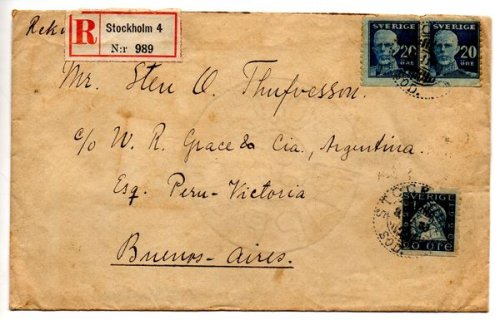 Rek
R
Stockholm 4
N:r 989
SVERIGE
20 20
ÖRE ÖRE
Mr. Sten O. Thufvesson.
c/o W. R. Grace & Cia, Argentina.
Esq. Peru-Victoria
Buenos-Aires.
SVERIGE
20 ÖRE